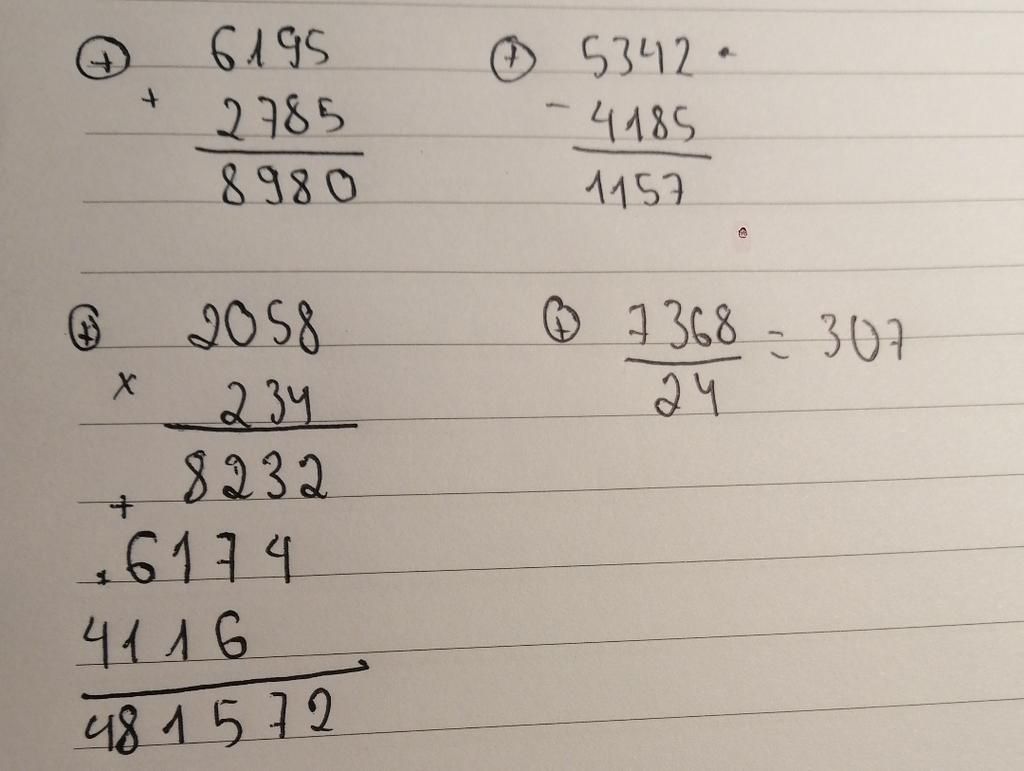 ⊕ 6195
+ 2785
8980
⊕ 5342 ·
- 4185
1157
⊕ 2058
x 234
8232
+
. 6174
4116
481572
⊕ 7368 = 307
24